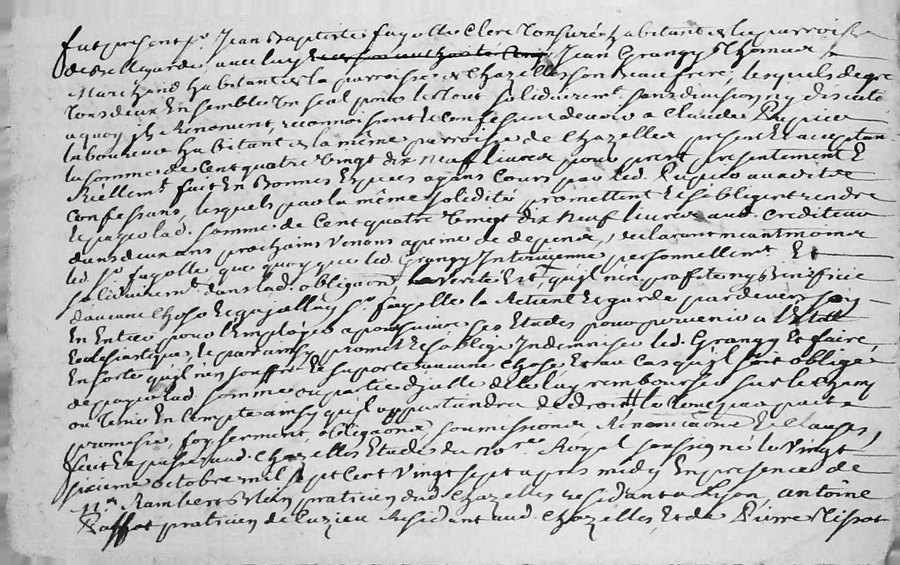 fut présent sr Jean Baptiste fayolle Clerc Tonsuré habitant de la parroisse
de Bellegarde, avec luy Jean Grangy Thomas
Marchand habitant de la parroisse de Chazelles son beau frère, lesquels de gré
tous deux Ensemble Un seul pour le tout solidairemt sans division ny discution
a quoy ils Renoncent, reconnoissent et Confessent devoir a Claude Pupier
laboureur habitant de la même parroisse de Chazelles présent et acceptant
la somme de Cent quatre Vingt dix neuf livres pour prest présentement Et
Réellemt fait En Bonnes Espèces ayans Cours par led. Pupier auxdits
Confessans, lesquels par la même solidité promettent et s'obligent rendre
et payer lad. somme de Cent quatre Vingt dix neuf livres aud. Créditeur
dans deux ans prochains Venons a peine de depens, déclarant néantmoins
led. sr fayolle que quoy que led. Grangy Intervienne personnellemt Et
solidairemt dans lad. obligaon la Verité Est, qu'il n'en profite ny Bénéficie
d'aucune Chose et que luy sr fayolles la Retient et garde par devers soy
En Entier pour l'Employer a poursuivre ses Etudes pour parvenir a l'Etat
Ecclésiastique, et par ainsy promet et s'oblige Indemniser led. Grangy et faire
En sorte qu'il n'en souffre et supporte aucune chose, Et au Cas qu'il sent obligé
de payer lad. somme ou partie d'icelle de le luy rembourser sur le champ
ou tenir En Compte ainsy qu'il appartiendra de droit le tenu par pacte
promesse, foy, serment, obligaons soumissions Renonciaons Et Clauses,
fait Et passé aud. Chazelles Etudes du Nore Royal soussigné le Vingt
sixieme octobre mil sept Cent Vingt sept apres midy En presence de
Mr Rambert praticien dud Chazelles residant a Lyon, antoine
praticien de Luzieu Résident aud. Chazelles, Et de Pierre